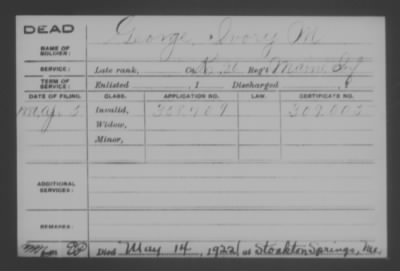 DEAD
NAME OF SOLDIER: George, Ivory M
SERVICE: Late rank, Co. K, 26 Reg't Maine Inf
TERM OF SERVICE: Enlisted , 1 Discharged , 1
DATE OF FILING. CLASS. APPLICATION NO. LAW. CERTIFICATE NO.
Invalid, 309.003
Widow,
Minor,
ADDITIONAL SERVICES:
REMARKS:
Died May 14, 1922 at Stockton Springs, Me.